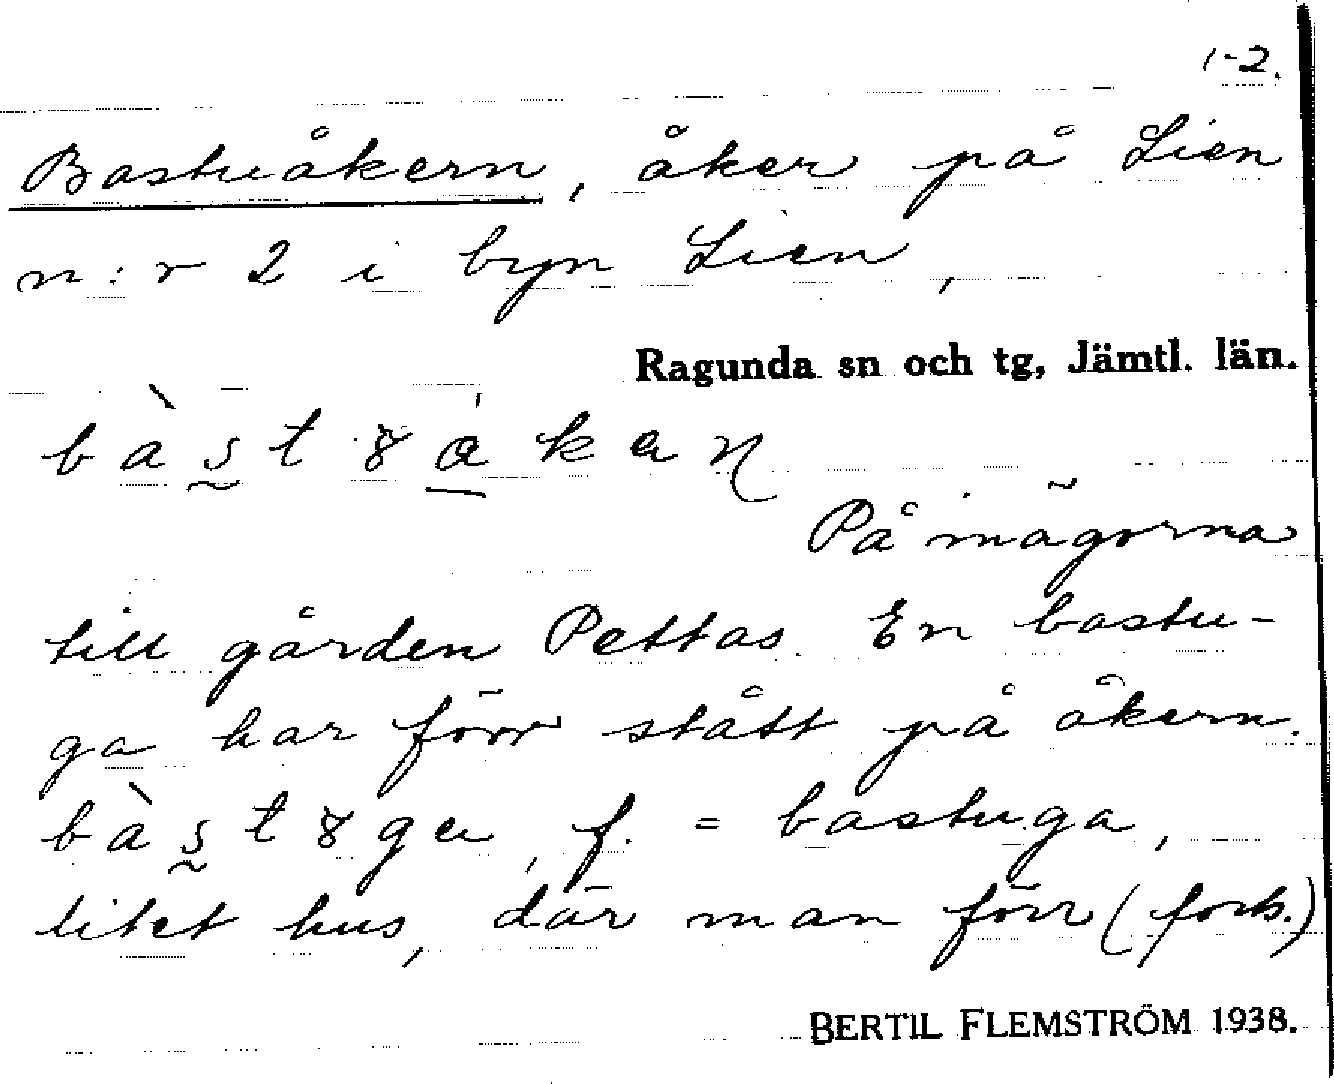 1-2.
Bastuåkern, åker på Lien
n:r 2 i byn Lien,
Ragunda sn och tg, Jämtl. län.
På mägorna
till gården Pettas. En bastu-
ga har förr stått på åkern.
f. = bastuga,
litet hus, där man förr (forts.)
BERTIL FLEMSTRÖM 1938.